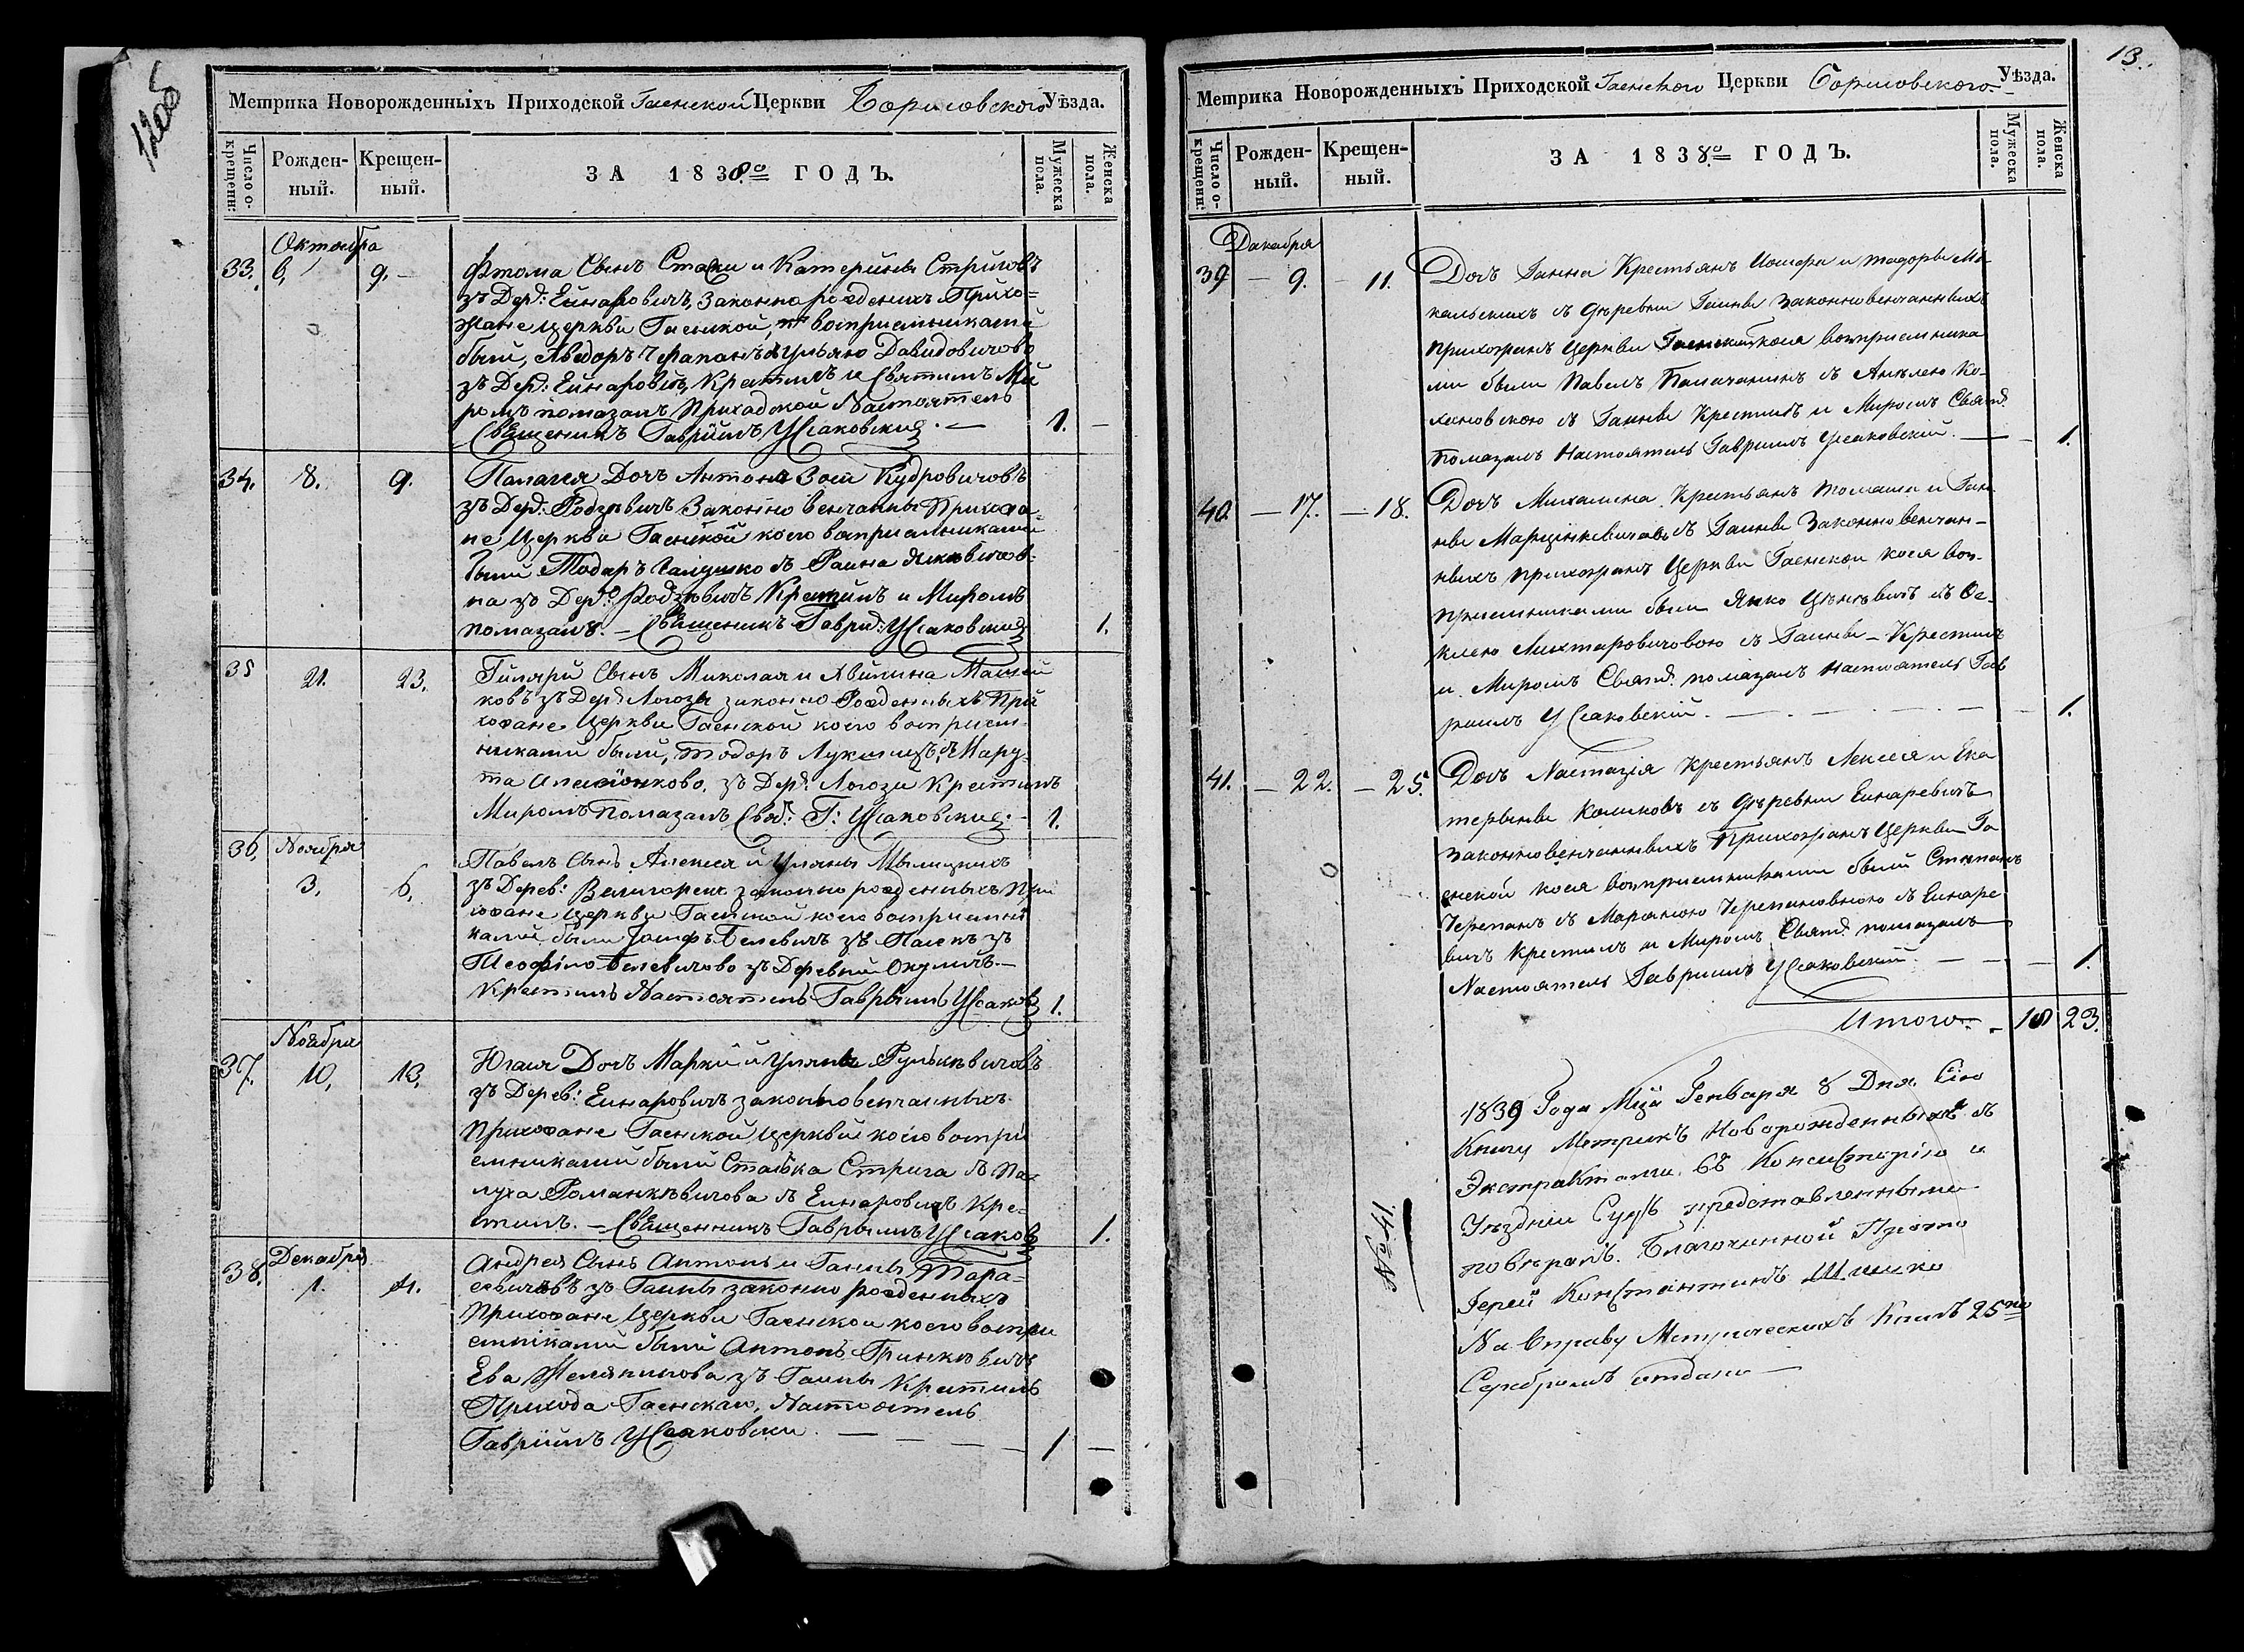 1205
Метрика Новорожденныхъ Приходской Гаенской Церкви Борисовского Уѣзда.
Число о-крещенн:
Рожден-ный.
Крещен-ный.
ЗА 1838го ГОДЪ.
Мужеска пола.
Женска пола.
Октября
33. 6, 9.
Фтома Сынъ Стаси и Катерины Стриговъ
зъ Дер: Ейнаровичъ, Законно рожденихъ Прихо=
жане Церкви Гаенской, воприемниками
были, Ѳведоръ Черапанъ Ульяно Давидовичово
зъ Дер: Ейнаровичъ, Крестилъ и Святимъ Ми
ромъ помазалъ Приходской Настоятель
Священикъ Гавріилъ Усаковский. — 1.
34. 8. 9.
Палагея Дочъ Антона Зоси Кудровичовъ
зъ Дер: Родзевичъ Законно венчанны Прихожа
не Церкви Гаенской коего воприемниками
были Тодаръ съ Раина
на зъ Дер: Родзевичъ Крестилъ и Миромъ
помазалъ. — Священикъ Гаврі: Усаковский 1.
35 21. 23.
Гиляри Сынъ Миколая и
ковъ зъ Дер: Логозы законно Рожденныхъ При
хожане Церкви Гаенской коего воприем
никами были, Тодоръ съ Мару
та зъ Дер: Логози Крестилъ
Миромъ помазалъ Свя: Г: Усаковский. — 1.
36, Ноября
3, 6,
Павелъ Сынъ Алексея и Уляны
зъ Дерев: законно рожденныхъ При
хожане Церкви Гаенской коего воприемни
ками были Іосифъ Белевичъ зъ
Теофіло Белевичово зъ Деревни —
Крестилъ Настоятель Гаврыилъ Усаков 1.
Ноября
37. 10, 13,
Югася Дочъ Марки и Уляны
зъ Дерев: Ейнаровичъ законно венчанныхъ
Прихожане Гаенской Церквй коего вопри
емниками были Стаська Стрига съ Па
луха Романкѣвичова съ Ейнаровичъ Кре=
стилъ. — Священникъ Гаврыилъ Усаков 1.
38. Декабря
1. 4.
Андрея Сынъ Антонъ и Ганны Тара=
севичовъ зъ Гаины законно рожденныхъ
Прихожане Церкви Гаенской коего вопри
емниками были Антонъ Гринкѣвичъ
Ева зъ Гаины Крестилъ
Прихода Гаенскаго, Настоятель
Гавріилъ Усаковски. — 1 —
13.
Метрика Новорожденныхъ Приходской Гаенского Церкви Борисовского Уѣзда.
Число о-крещенн:
Рожден-ный.
Крещен-ный.
ЗА 1838го ГОДЪ.
Мужеска пола.
Женска пола.
Декабря
39 — 9. — 11.
Дочъ Ганна Крестьянъ Иосифа и тадоры Ми
кальскихъ съ дѣревни Гаины Законновенчанныхъ
прихожанъ Церкви Гаенской коея воприемника
ми были Павелъ съ Анелею Ко-
хановскою съ Гаины Крестилъ и Миромъ Свят:
Помазалъ Настоятель Гавриилъ Усаковский. — 1.
40. — 17. — 18.
Дочъ Михалина Крестьянъ Томаша и Ган
ны Марцинкевичовъ съ Гаины Законно венчан-
ныхъ прихожанъ Церкви Гаенской коея вос-
приемниками были Янко съ Ѳе-
клею съ Гаины — Крестилъ
и Миромъ Свят: помазалъ Настоятель Гав
риилъ Усаковскій. — 1.
41. — 22. — 25.
Дочъ Настазія Крестьянъ Лексея и Ека
терыны съ дѣревни Еинаревичъ
Законновенчанныхъ Прихожанъ Церкви Га
енской коея воприемниками были Степанъ
Черепанъ съ Маряною Черепановною съ Еинаре
вичъ Крестилъ и Миромъ Свят: помазалъ
Настоятель Гавриилъ Усаковскій. — 1.
Итого. 18 23.
1839 Года Мца Генваря 8 Дня Сію
Книгу Метрикъ Новорожденныхъ съ
Экстрактами въ Консисторію и
Уѣздніи Судъ представленными
повѣралъ. Благочинной Прото
Іерей Константинъ
На Справу Метрическихъ Книгъ 25ко
Серебромъ отдано —